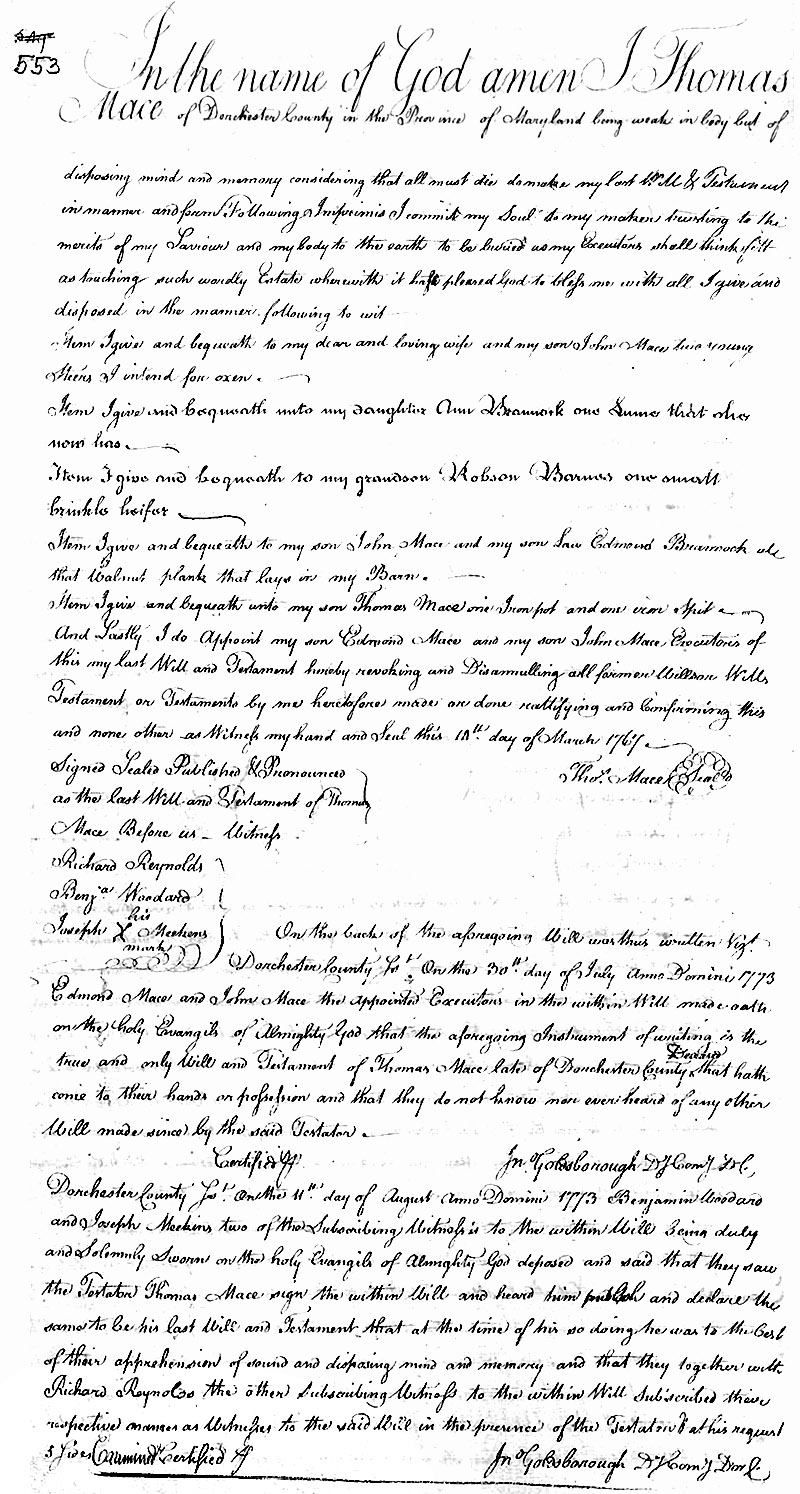 553
In the name of God amen I Thomas
Mace of Dorchester County in the Province of Maryland being weak in body but of
disposing mind and memory considering that all must die do make my last Will & Testament
in manner and form Following Imprimis I commit my Soul to my maker trusting to the
merits of my Saviour and my body to the earth to be buried as my Executors shall think fitt
as touching such wordly Estate wherewith it hath pleased God to bless me with all I give and
disposed in the manner following to wit
Item I give and bequeath to my dear and loving wife and my son John Mace two young
Steers I intend for oxen.
Item I give and bequeath unto my daughter Ann Brannock one that she
now has.
Item I give and bequeath to my grandson Robson Barnes one small
brinkle heifer
Item I give and bequeath to my son John Mace and my son Law Edmond Brannock all
that Walnut plank that lays in my Barn.
Item I give and bequeath unto my son Thomas Mace one Iron pot and one iron Spit
And Lastly I do Appoint my son Edmond Mace and my son John Mace Executors of
this my last Will and Testament hereby revoking and Disannulling all former Will or Wills
Testament or Testaments by me heretofore made or done rattifying and Confirming this
and none other as Witness my hand and Seal this day of March 1767.
Signed Sealed Published & Pronounced Thos. Mace Seal
as the last Will and Testament of Thomas
Mace Before us - Witness
Richard Reynolds
Benja Woodard
Joseph his X mark Meekens On the back of the aforegoing Will was thus written Vizt.
Dorchester County Ss. On the 30th day of July Anno Domini 1773
Edmond Mace and John Mace the appointed Executors in the within Will made oath
on the holy Evangils of Almighty God that the aforegoing Instrument of writing is the
true and only Will and Testament of Thomas Mace late of Dorchester County Deceased that hath
come to their hands or possession and that they do not know nor ever heard of any other
Will made since by the said Testator.
Certified Jno. Goldsborough
Dorchester County Ss. On the 11th day of August Anno Domini 1773 Benjamin Woodard
and Joseph Meekins two of the Subscribing Witness is to the within Will being duly
and Solemnly Sworn on the holy Evangils of Almighty God deposed and said that they saw
the Testator Thomas Mace sign the within Will and heard him publish and declare the
same to be his last Will and Testament that at the time of his so doing he was to the best
of their apprehension of sound and disposing mind and memory and that they together with
Richard Reynolds the other Subscribing Witness to the within Will Subscribed their
respective names as Witnesses to the said Will in the presence of the Testator & at his request
5 Sides Examined Certified Jno. Goldsborough